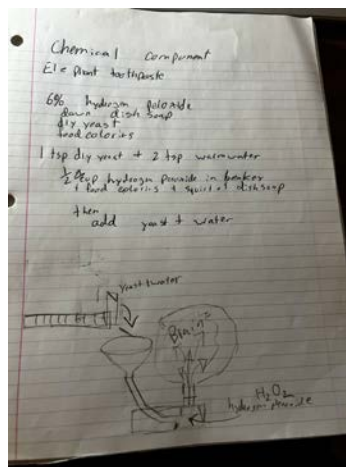 Chemical component
Ele plant toothpaste
6% hydrogen peloxide
dawn dish soap
diy yeast
food colorits
1 tsp diy yeast + 2 tsp warmwater
1/2 cup hydrogen peroxide in beaker
+ food colorits + squirt of dishsoap
then
add yeast + water
yeast+water
"Brain"
H2O2
hydrogen peroxide